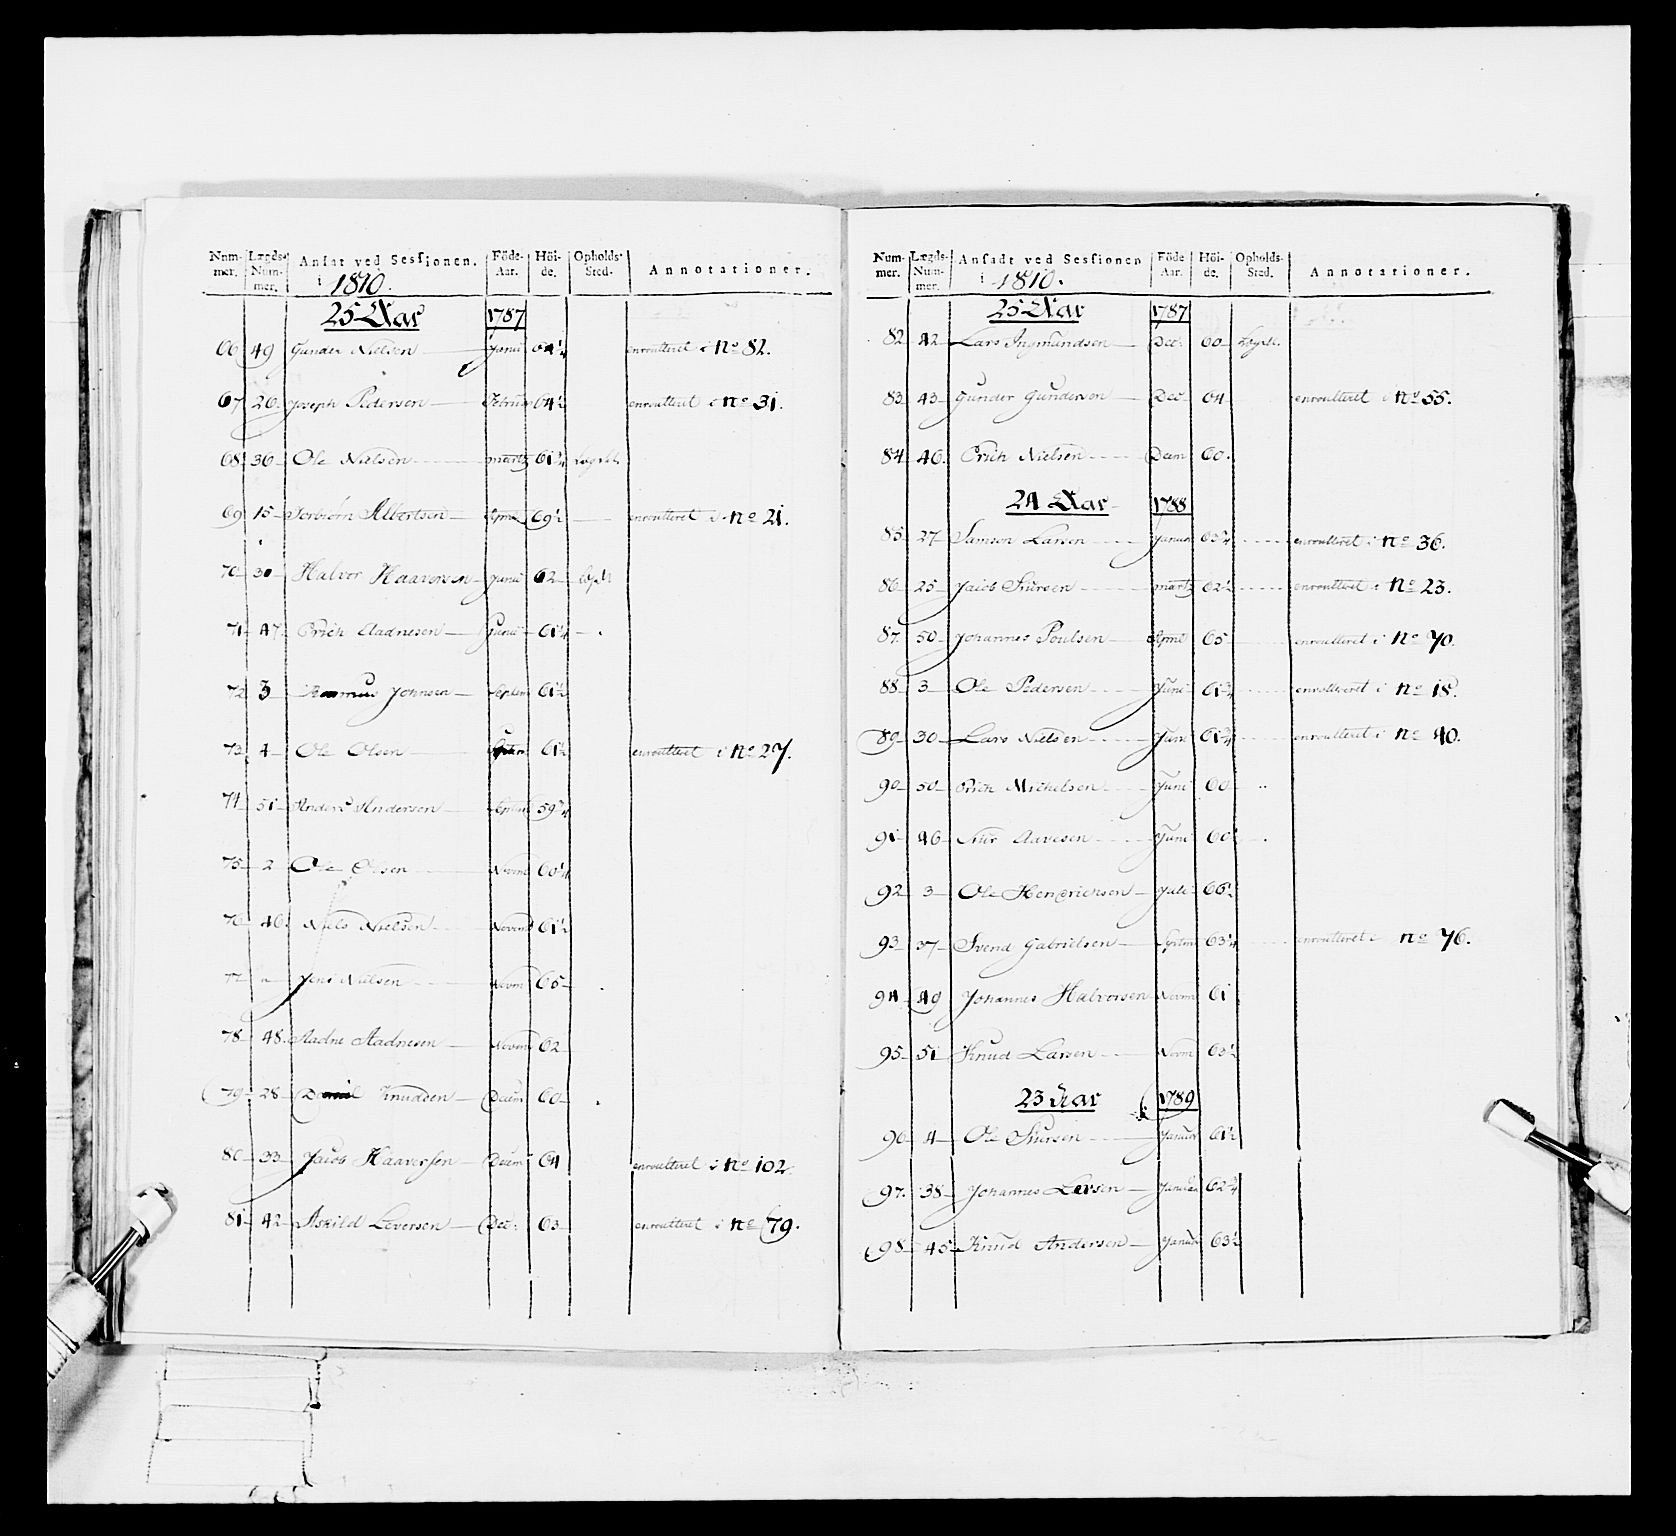 Num-mer. Lægds-Num-mer. Ansat ved Sessionen. i 1810. Föde-Aar. Höi-de. Opholds-Sted. Annotationer.
25 Aar 1787
66 49 Gunder Nielsen Janu 64¼ enroulleret i No 82.
67 26 Joseph Pedersen Februar 64½ enroulleret i No 31.
68 36 Ole Nielsen martz 61¾ Lægdet
69 15 Torbiörn Albertsen April 69½ enroulleret i No 21.
70 30 Halvor Haaversen Junii 62 Lægdt
71 47 Erich Aadnesen Junii 61¼
72 3 Rasmus Johnsen Septem 61½
73 4 Ole Olsen 61½ enroulleret i No 27.
74 51 Anders Andersen Septem 59¾
75 2 Ole Olsen Novem 60¼
76 46 Niels Nielsen Novem 61½
77 Jens Nielsen Novm 65
78 48 Aadne Aadnesen Novem 62
79 28 Daniel Knudsen Decem 60
80 33 Jacob Haaversen Decem 64 enroulleret i No 102.
81 42 Askild Leversen Dec: 63 enroulleret i No 79.
Num-mer. Lægds-Num-mer. Ansadt ved Sessionen i 1810. Föde Aar. Höi-de. Opholds-Sted. Annotationer.
25 Aar 1787
82 42 Lars Ingmundsen Dec: 60 Lægdt.
83 43 Gunder Gundersen Dec: 64 enroulleret i No 55.
84 46. Erich Nielsen Decm 60.
24 Aar 1788
85 27 Samson Larsen Januar 63¾ enroulleret i No 36.
86 25 Jacob Siursen martz 62½ enroulleret i No 23.
87 50 Johannes Poulsen April 65 enroulleret i No 70.
88 3 Ole Pedersen Juni 61¾ enrolleret i No 18.
89 30 Lars Nielsen Juni 61¾ enroulleret i No 40.
90 50 Erich Michelsen Juni 60
91 46 Siur Aavesen Juni 60
92 3 Ole Hendrichsen Juli 66½
93 37 Svend Gabrielsen Septm 63¼ enroulleret i No 76.
94 49 Johannes Halvorsen Novm 61
95 51 Knud Larsen Novm 63½
23 Aar 1789
96 4 Ole Siursen Januar 61½
97. 38 Johannes Larsen Januar 62¾
98 45 Knud Andersen Januar 63½